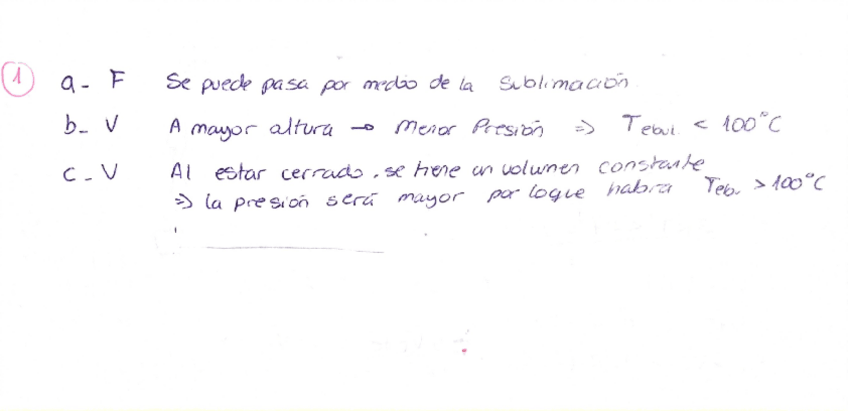 1 a- F Se puede pasa por medio de la Sublimación.
b- V A mayor altura → menor Presión ⇒ Tebul. < 100°C
c- V Al estar cerrado, se tiene un volumen constante
⇒ la presión será mayor por loque habra Teb. > 100°C